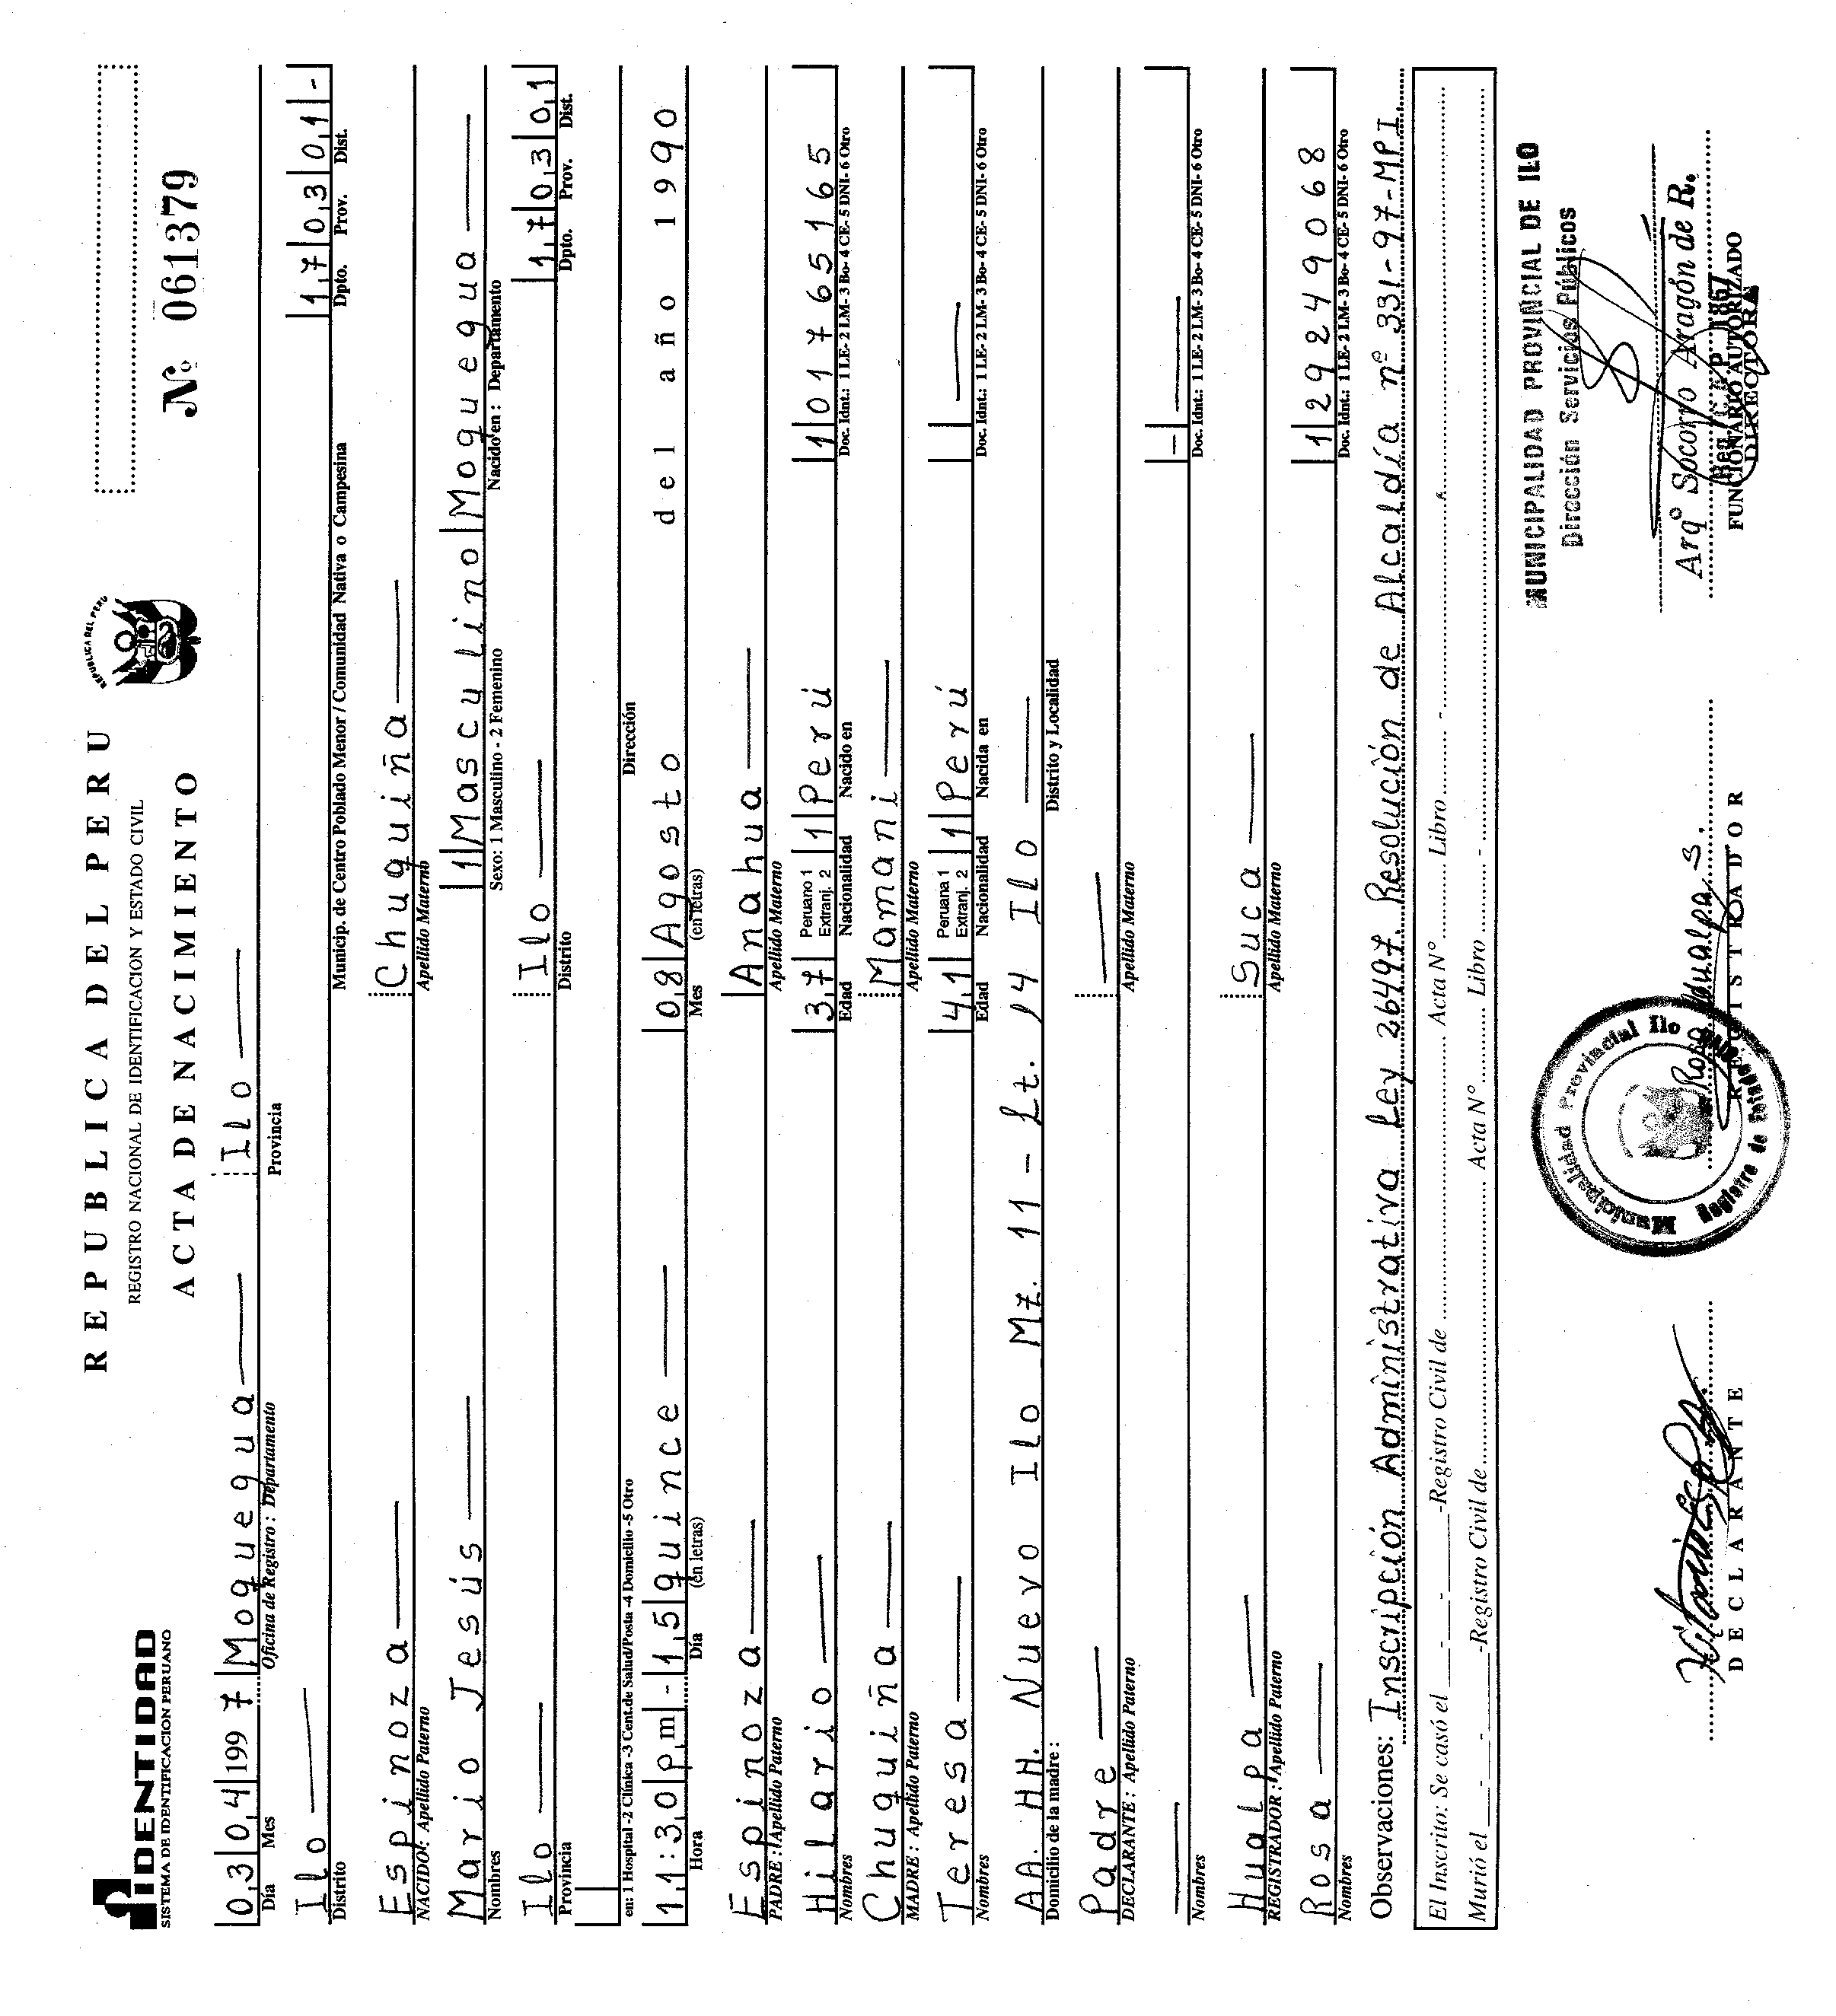 IDENTIDAD
SISTEMA DE IDENTIFICACION PERUANO
REPUBLICA DEL PERU
REGISTRO NACIONAL DE IDENTIFICACION Y ESTADO CIVIL
ACTA DE NACIMIENTO
REPUBLICA DEL PERU
Nº 061379
03 04 1997 Moquegua Ilo
Día Mes Oficina de Registro : Departamento Provincia
Ilo 17 03 01 -
Distrito Municip. de Centro Poblado Menor / Comunidad Nativa o Campesina Dpto. Prov. Dist.
Espinoza Chuquiña
NACIDO: Apellido Paterno Apellido Materno
Mario Jesús 1 Masculino Moquegua
Nombres Sexo: 1 Masculino - 2 Femenino Nacido en : Departamento
Ilo Ilo 17 03 01
Provincia Distrito Dpto. Prov. Dist.
en: 1 Hospital -2 Clínica -3 Cent.de Salud/Posta -4 Domicilio -5 Otro Dirección
11:30 pm - 15 quince 08 Agosto del año 1990
Hora Día (en letras) Mes (en letras)
Espinoza Anahua
PADRE : Apellido Paterno Apellido Materno
Hilario 37 Peruano 1 Extranj. 2 1 Perú 1 01765165
Nombres Edad Nacionalidad Nacido en Doc. Idnt.: 1 LE- 2 LM- 3 Bo- 4 CE- 5 DNI- 6 Otro
Chuquiña Mamani
MADRE : Apellido Paterno Apellido Materno
Teresa 41 Peruana 1 Extranj. 2 1 Perú
Nombres Edad Nacionalidad Nacida en Doc. Idnt.: 1 LE- 2 LM- 3 Bo- 4 CE- 5 DNI- 6 Otro
AA. HH. Nuevo Ilo Mz. 11 - Lt. 14 Ilo
Domicilio de la madre : Distrito y Localidad
Padre
DECLARANTE : Apellido Paterno Apellido Materno
Nombres Doc. Idnt.: 1 LE- 2 LM- 3 Bo- 4 CE- 5 DNI- 6 Otro
Hualpa Suca
REGISTRADOR : Apellido Paterno Apellido Materno
Rosa 1 29249068
Nombres Doc. Idnt.: 1 LE- 2 LM- 3 Bo- 4 CE- 5 DNI- 6 Otro
Observaciones: Inscripción Administrativa Ley 26497. Resolución de Alcaldía nº 331-97-MPI
El Inscrito: Se casó el - - -Registro Civil de Acta Nº Libro -
Murió el - - -Registro Civil de Acta Nº Libro -
MUNICIPALIDAD PROVINCIAL DE ILO
Dirección Servicios Públicos
Municipalidad Provincial Ilo
Registro de Estado
Rosa Hualpa S.
Arqº Socorro Aragón de R.
Reg. C.A.P. 1867
DIRECTORA
DECLARANTE
REGISTRADOR
FUNCIONARIO AUTORIZADO